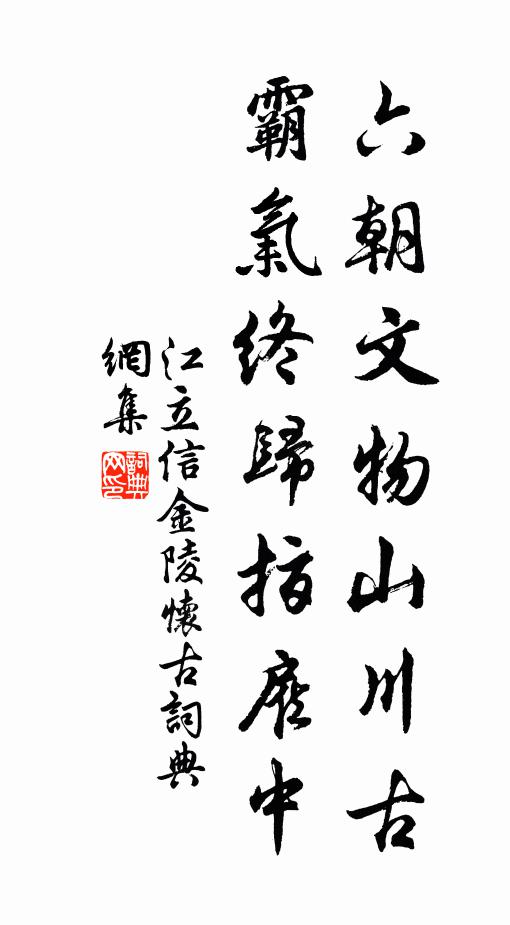 六朝文物山川古
霸氣終歸指顧中
江立信金陵懷古詞典
網集
詞典
网印